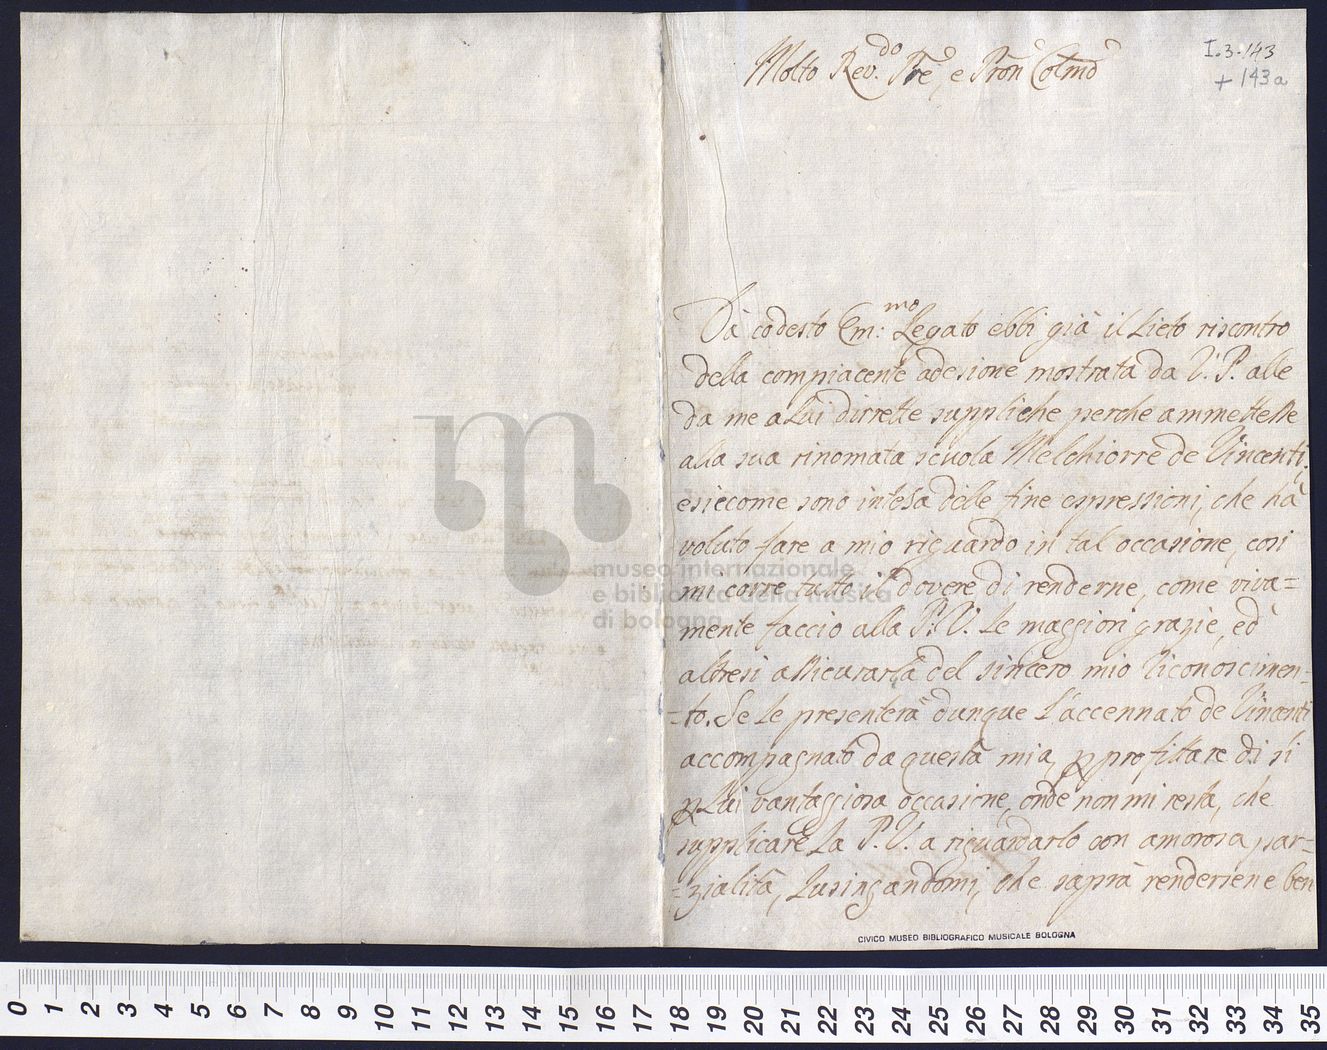 I.3.143
+ 143a
Molto Rev.do Pre, e Pron Colmo
Dà codesto Em:mo Legato ebbi già il Lieto riscontro
della compiacente adesione mostrata da V. P. alle
da me a Lui dirette suppliche perche ammettesse
alla sua rinomata scuola Melchiorre de Vincenti,
e siccome sono intesa delle fine espressioni, che hà
voluto fare a mio riguardo in tal occasione, così
mi corre tutto il dovere di renderne, come viva=
mente faccio alla P. V. Le maggiori grazie, ed
altresi assicurarla del sincero mio riconoscimen=
=to. Se Le presenterà dunque L'accennato de Vincenti
accompagnato da questa mia, p profittare di sì
p Lui vantaggiosa occasione, onde non mi resta, che
supplicare La P. V. a riguardarlo con amorosa par=
=zialità, Lusingandomi, che saprà rendersene ben
museo internazionale
e biblioteca della musica
di bologna
CIVICO MUSEO BIBLIOGRAFICO MUSICALE BOLOGNA
0 1 2 3 4 5 6 7 8 9 10 11 12 13 14 15 16 17 18 19 20 21 22 23 24 25 26 27 28 29 30 31 32 33 34 35